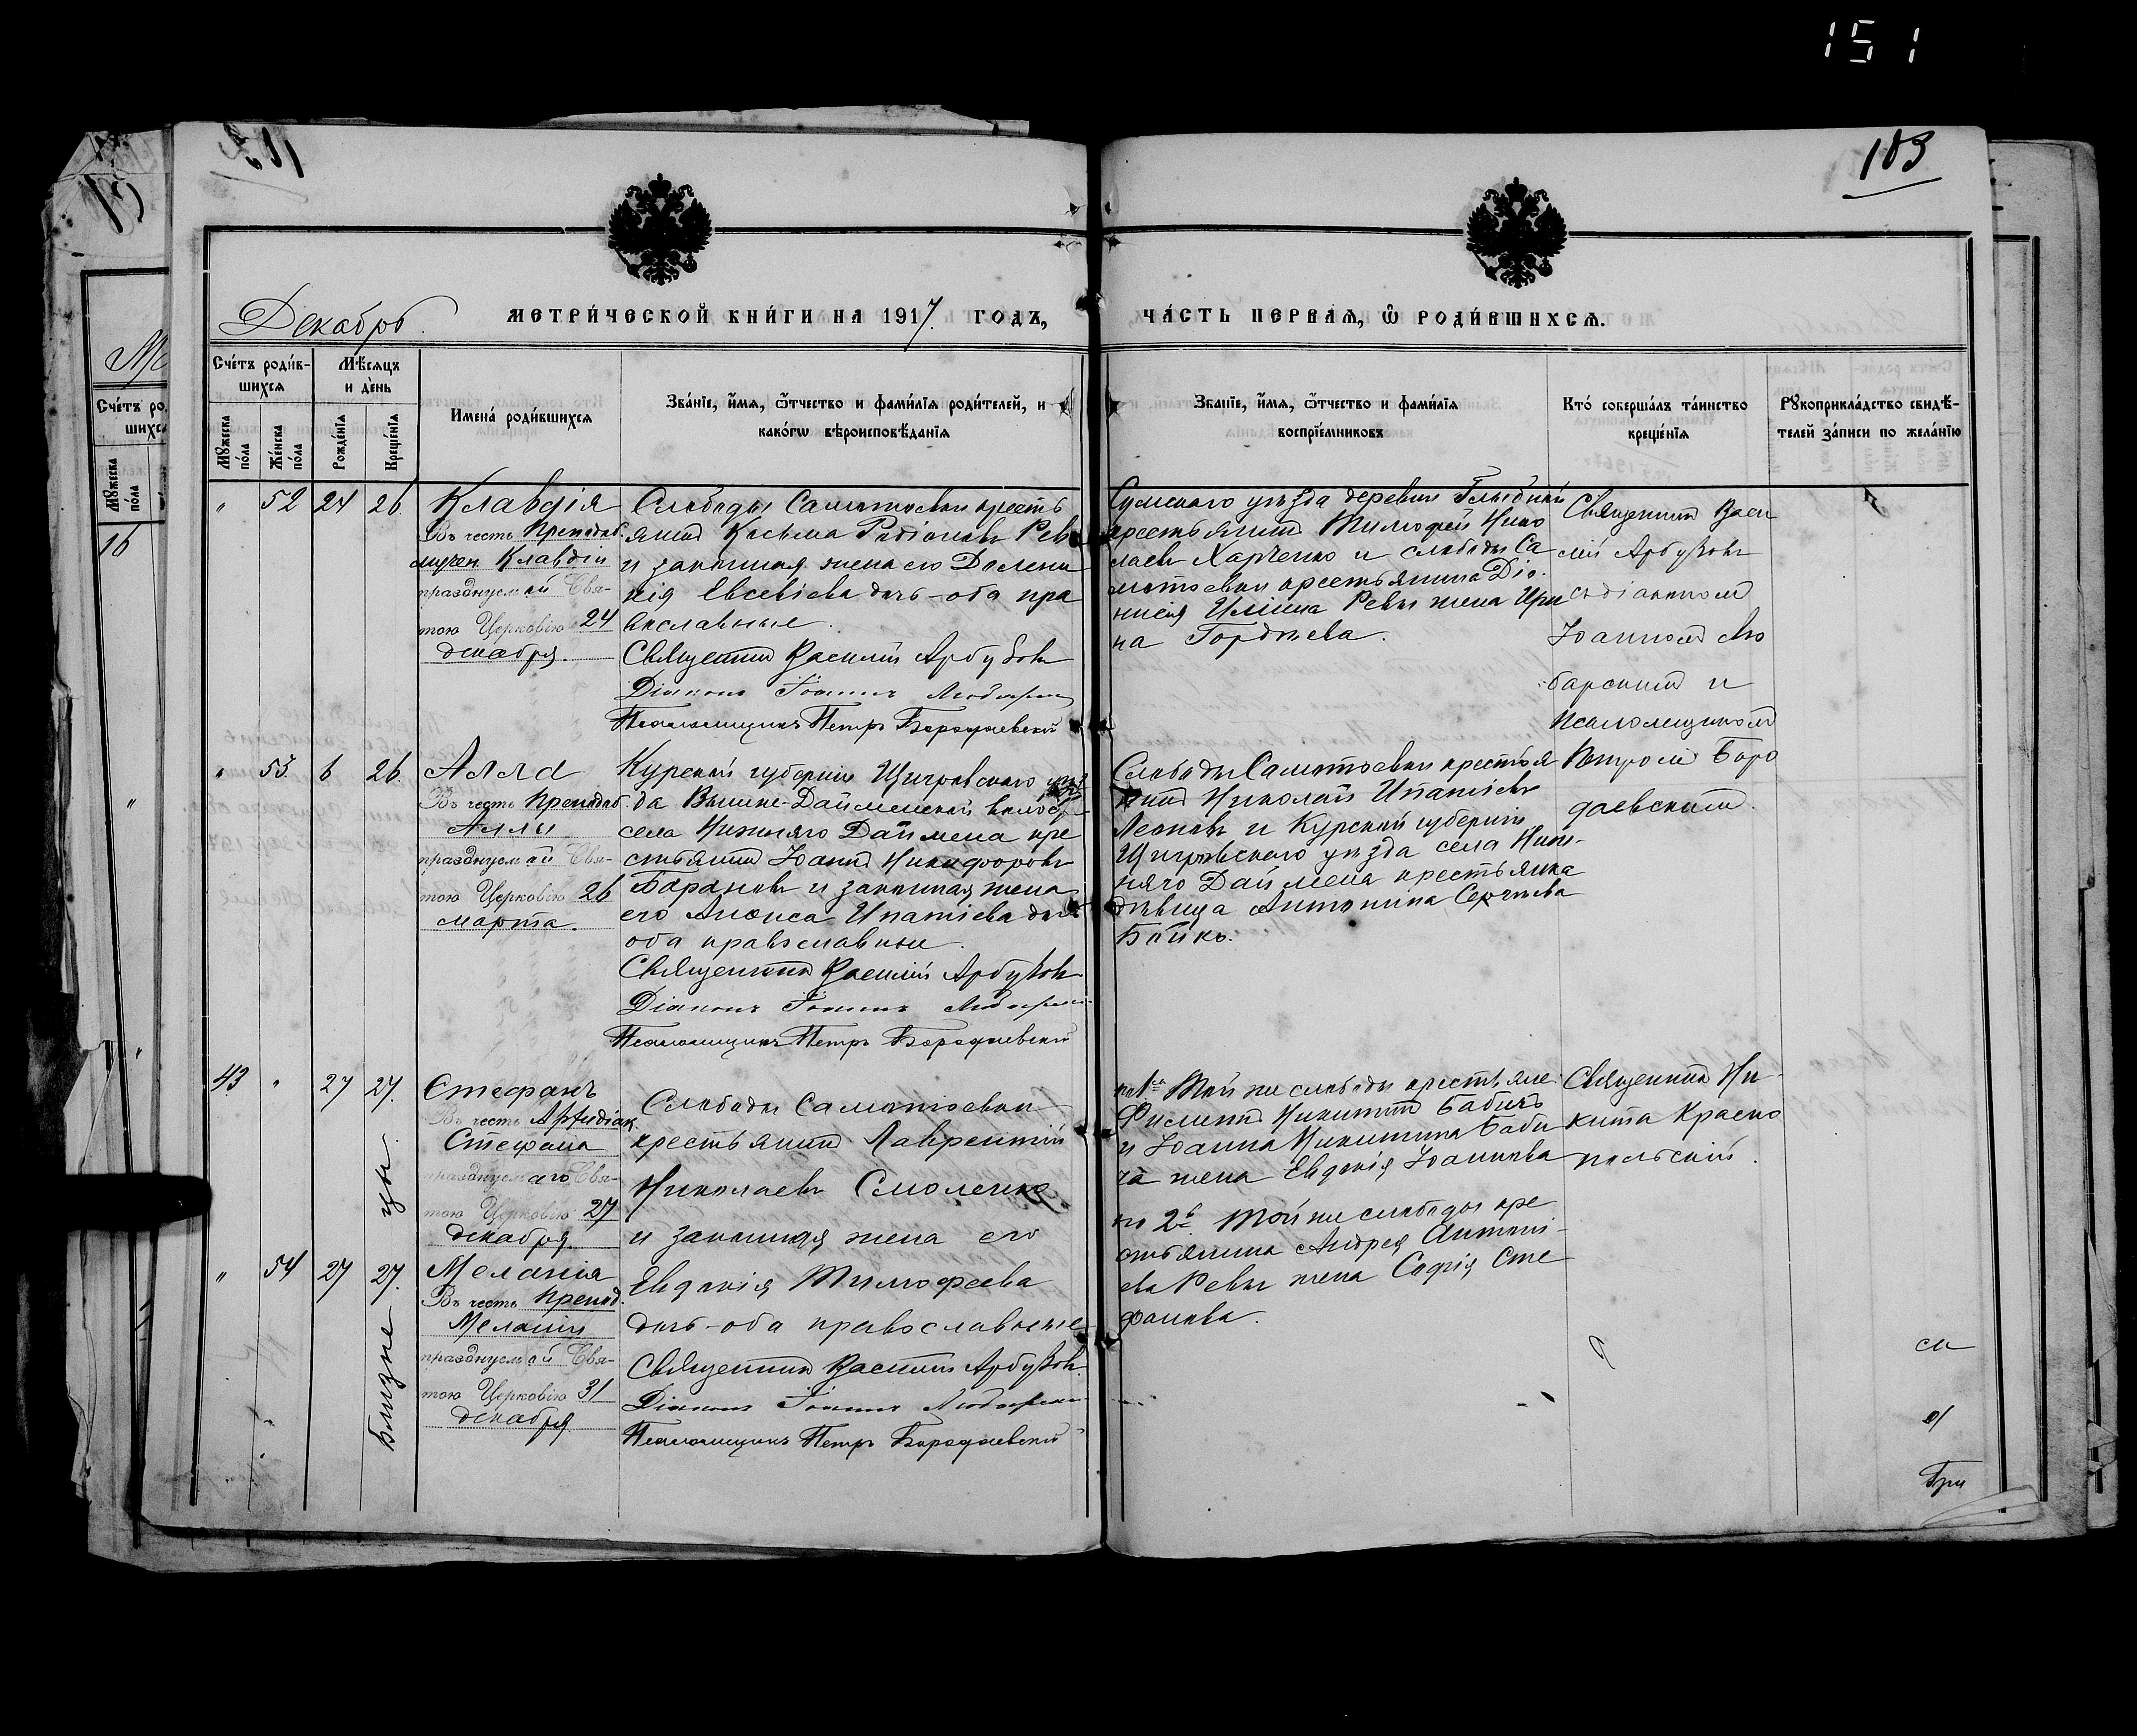 151
103
Декабрь.
МЕТРИ́ЧЕСКОЙ КНИ́ГИ НА 1917. ГОДЪ,
ЧА́СТЬ ПЕРВАѦ, Ѡ҆ РОДИ́ВШИХСѦ.
Сче́тъ роди́в-
шихсѧ
Мѣ́сѧцъ
и де́нь
Мꙋ́жеска по́ла
Же́нска по́ла
Рожде́нїѧ
Креще́нїѧ
Имена̀ роди́вшихсѧ
Зва́нїе, и҆́мѧ, ѻ҆́тчество и фами́лїѧ роди́телей, и
како́гѡ вѣроисповѣ́данїѧ
Зва́нїе, и҆́мѧ, ѻ҆́тчество и фами́лїѧ
воспрїе́мниковъ
Кто̀ соверша́лъ та́инство
креще́нїѧ
Рꙋкоприкла́дство свидѣ́-
телей за́писи по жела́нїю
" 52 24 26.
Клавдія
Въ честь Преподоб.
мучен. Клавдіи
празднуемой Свя-
тою Церковію 24
декабря.
Слободы Самотоевки кресть
янинъ Косьма Родіоновъ Рев
и законная жена его Домени
кія Евсевіева дочь - оба пра
вославные.
Священникъ Василій Арбузовъ
Діаконъ Іоаннъ Любарскій
Псаломщикъ Петръ Бородаевскій
Сумскаго уѣзда деревни
крестьянинъ Тимофей Нико
лаевъ Харченко и слободы Са
мотоевки крестьянина Діо
нисія Ревы жена Ири
на Гордѣева.
Священникъ Васи
лій Арбузовъ
съ діакономъ
Іоанномъ Лю
барскимъ и
псаломщикомъ
Петромъ Боро
даевскимъ.
" 53. 6 26.
Алла
Въ честь Преподоб.
Аллы
празднуемой Свя-
тою Церковію 26
марта.
Курской губерніи Щигровскаго уѣз
да Вышне-Дайменской волос.
села Нижняго Даймена кре
стьянинъ Іоаннъ Никифоровъ
Барановъ и законная жена
его Анѳиса Ипатіева дочь
оба православные.
Священникъ Василій Арбузовъ
Діаконъ Іоаннъ Любарскій
Псаломщикъ Петръ Бородаевскій
Слободы Самотоевки крестья
нинъ Николай Ипатіевъ
Леоновъ и Курской губерніи
Щигровскаго уѣзда села Ниж-
няго Даймена крестьянка
дѣвица Антонина Сергѣева
Бойко.
43 " 27 27.
Стефанъ
Въ честь Архидіак.
Стефана
празднуемаго Свя-
тою Церковію 27
декабря.
" 54 27 27.
Меланія
Въ честь Препод.
Меланіи
празднуемой Свя-
тою Церковію 31
декабря
Близнецы.
Слободы Самотоевки
крестьянинъ Лаврентій
Николаевъ Смоленко
и законная жена его
Евдокія Тимофеева
дочь - оба православные
Священникъ Василій Арбузовъ.
Діаконъ Іоаннъ Любарскій
Псаломщикъ Петръ Бородаевскій
Той же слободы крестьяне
Филиппъ Никитинъ Бабичъ
и Іоанна Никитина Баби
ча жена Евдокія Іоаннова
по 2й Той же слободы кре
стьянина Андрея Антоні-
ева Ревы жена Софія Сте
фанова.
Священникъ Ни
кита Красно
польскій.
16
Сче́тъ ро
шихсѧ
Мꙋ́жеска по́ла